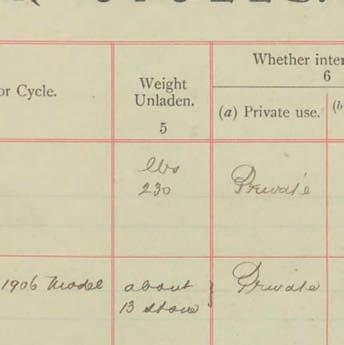 Whether inter
6
or Cycle.
Weight
Unladen.
5
(a) Private use.
(b
lbs
230
Private
1906 Model
about
13 stone
Private